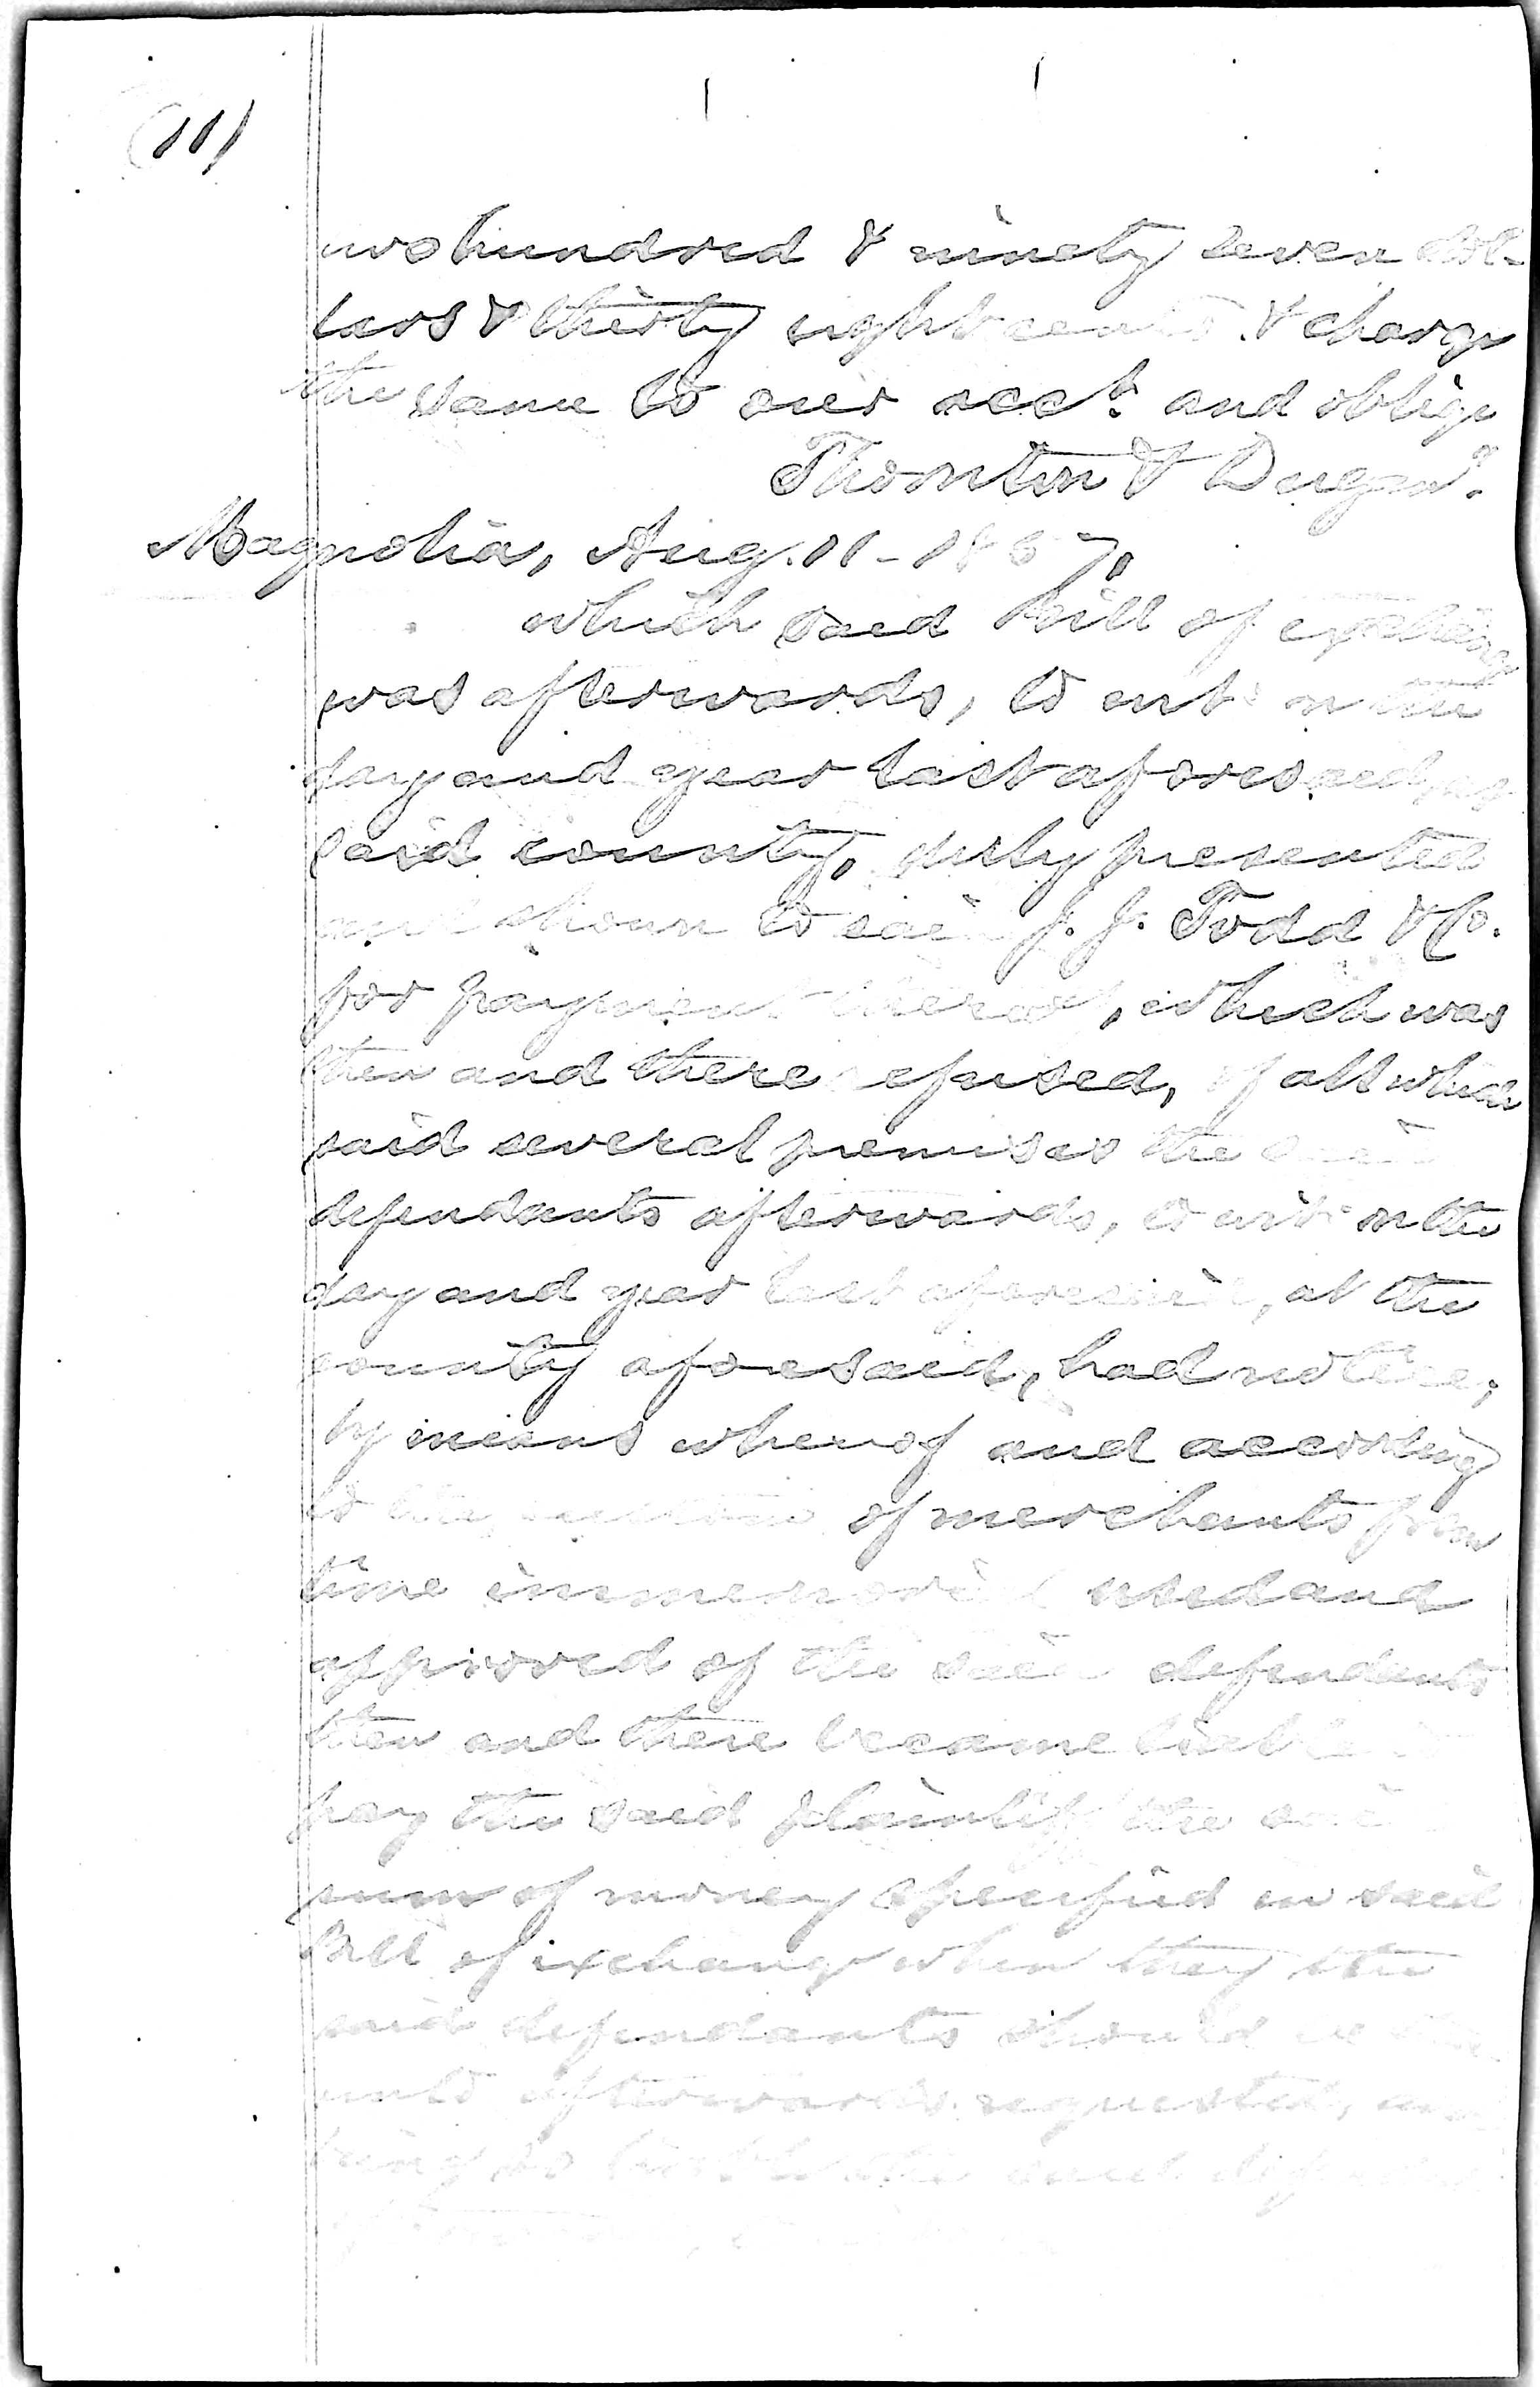 (11)
two hundred & ninety seven dol-
lars & thirty eight cents & charge
the same to our acct. and oblige
Thornton & Dugan.
Magnolia, Aug. 11 - 1867,
which said bill of exchange
was afterwards, to wit: on the
day and year last aforesaid, at
said county, duly presented
and shown to said J. J. Todd & Co.
for payment thereof, which was
then and there refused, of all which
said several premises the said
defendants afterwards, to wit: on the
day and year last aforesaid, at the
county aforesaid, had notice,
by means whereof and according
to the custom of merchants from
time immemorial used and
approved of the said defendants
then and there became liable
pay the said plaintiff the said
sum of money specified in said
Bill of exchange when they the
said defendants should be
unto afterwards requested, and
being so liable the said defendants